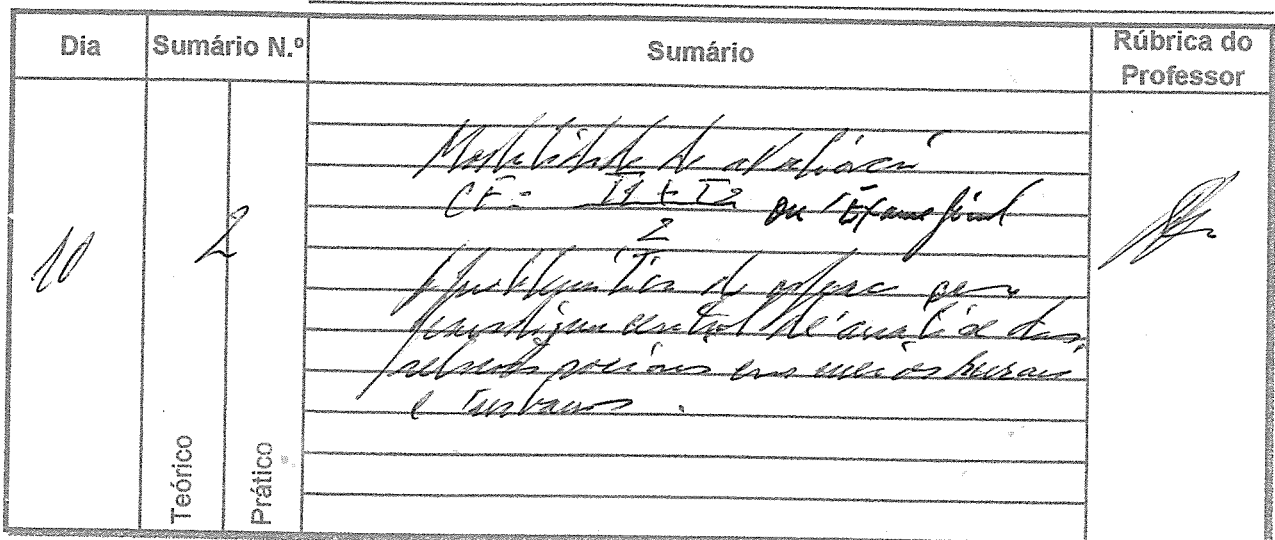 Dia
Sumário N.º
Sumário
Rúbrica do
Professor
10
2
Modalidade de avaliação
CF = T1 + T2 ou Exame final
2
A problemática do espaço
central de análise das
relações sociais em meios rurais
e urbanos.
Teórico
Prático